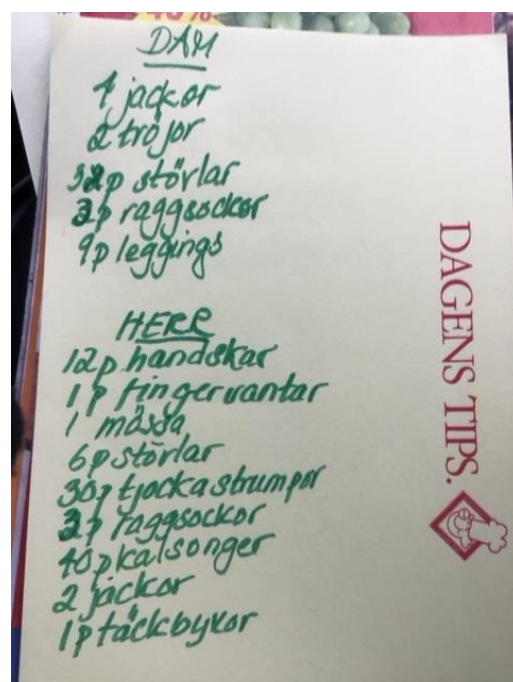 40%
DAM
4 jackor
2 tröjor
p stövlar
p raggsockor
9p leggings
HERR
12p handskar
1 p fingervantar
1 mössa
6p stövlar
30p tjocka strumpor
p raggsockor
40p kalsonger
2 jackor
1p täckbyxor
DAGENS TIPS.